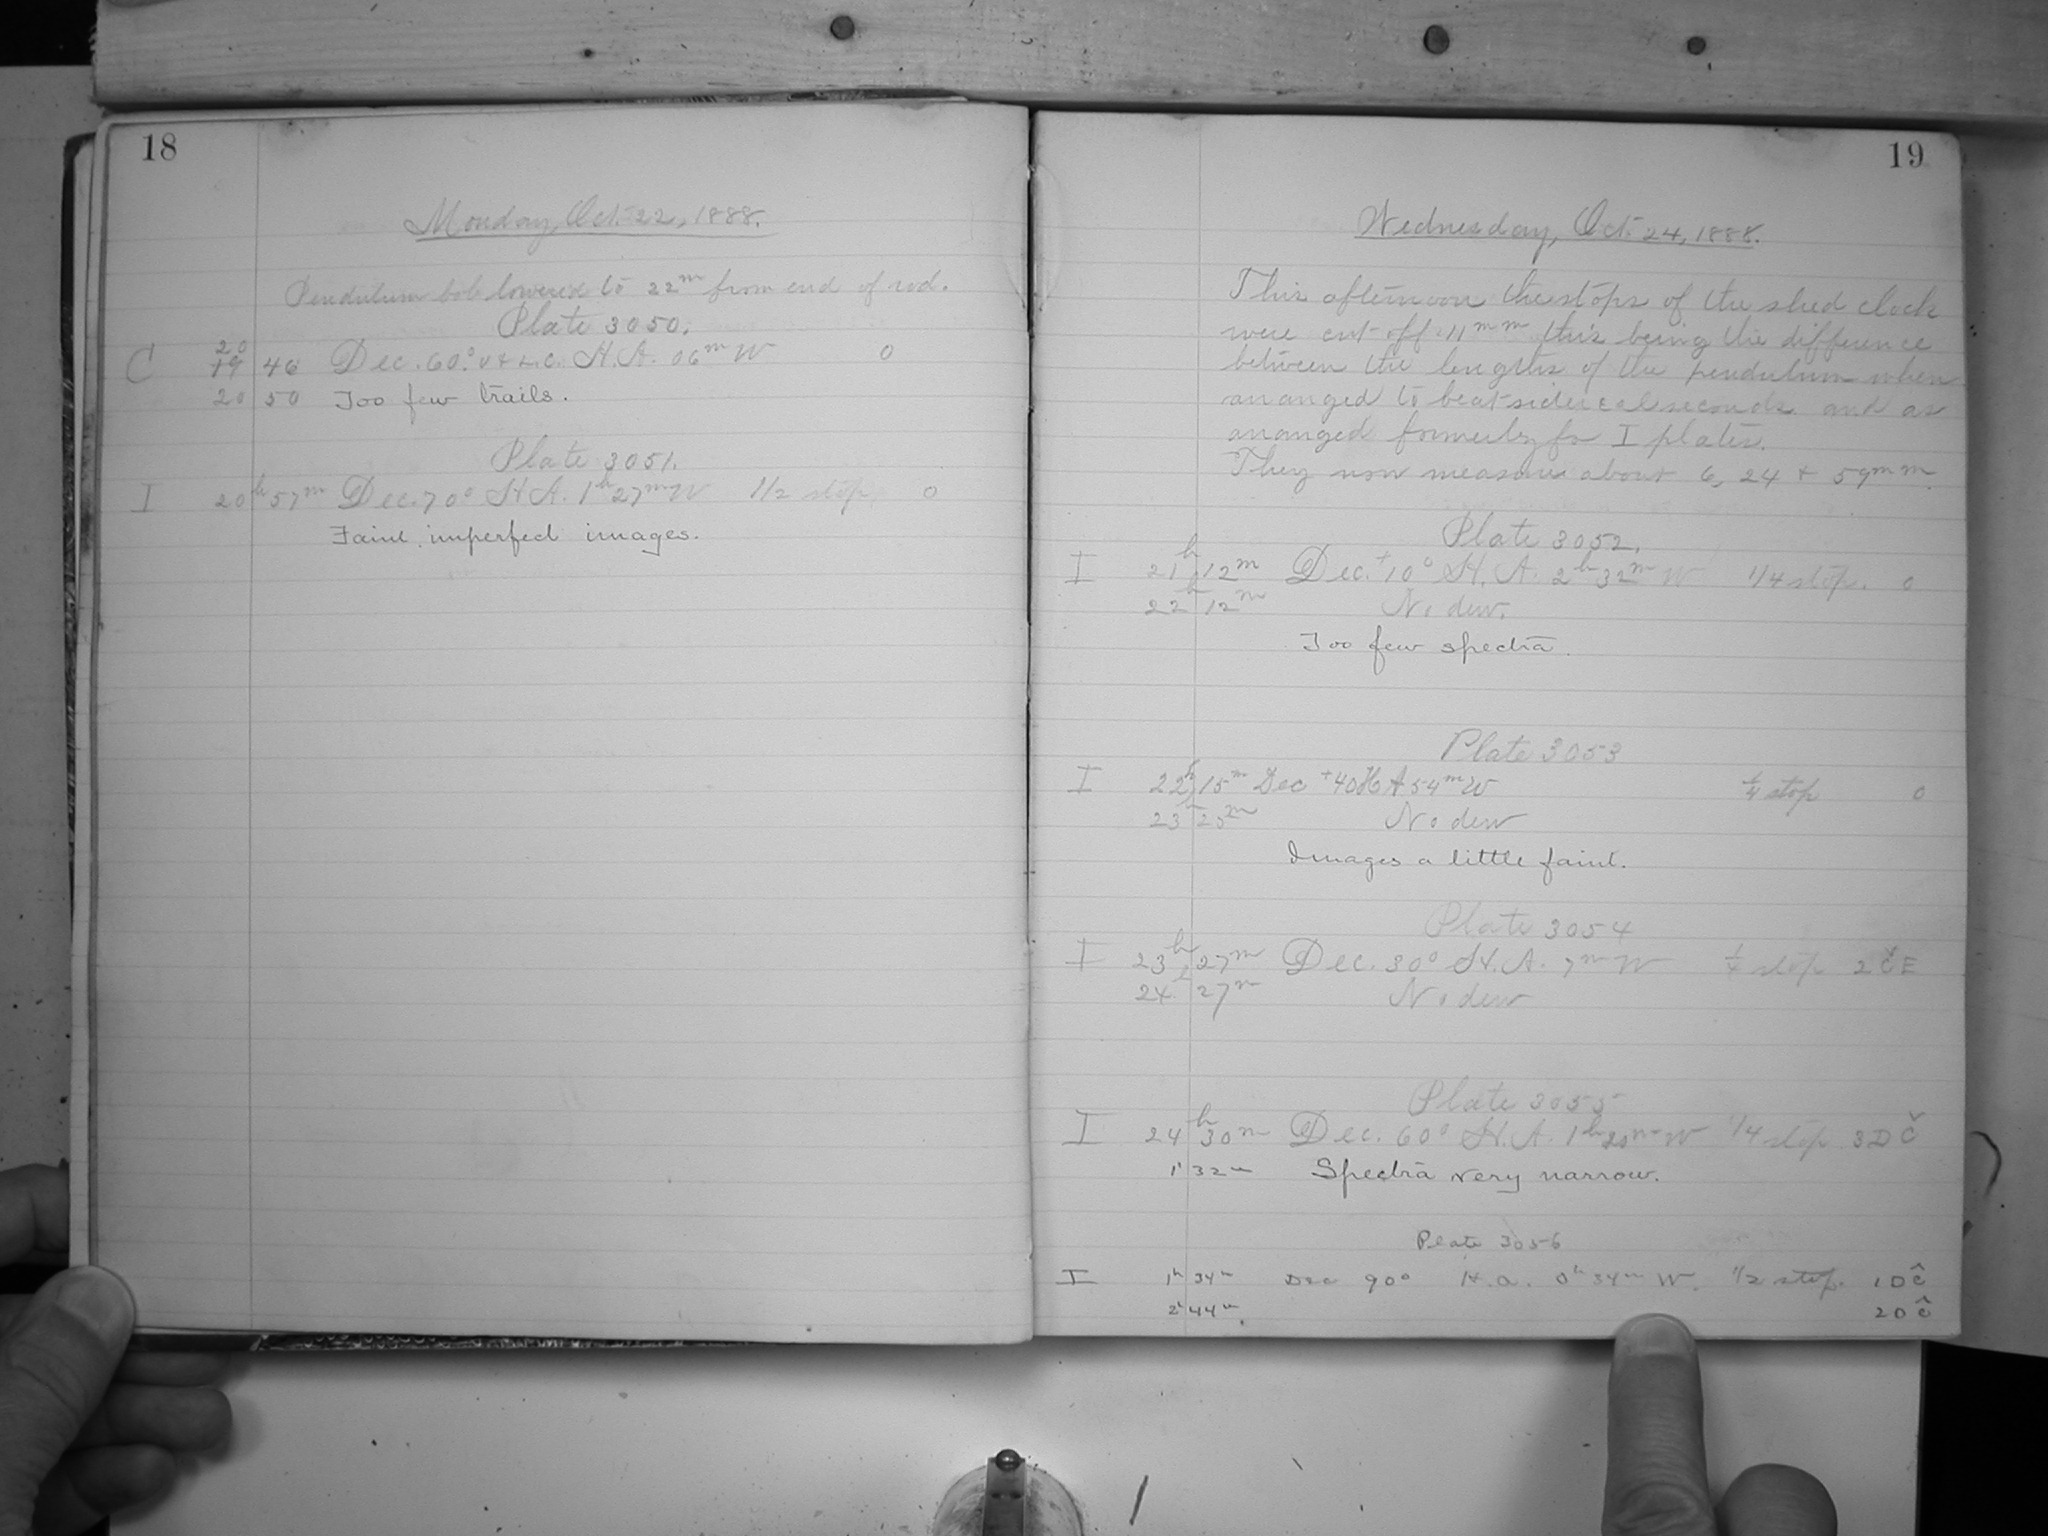 18
Monday, Oct. 22, 1888.
Pendulum bob lowered to 22m from end of rod.
Plate 3050.
20
C 19 46 Dec. 60° U + L.C. H.A. 06m W 0
20 50 Too few trails.
Plate 3051.
I 20h 57m Dec. 70° H.A. 1h 27m W 1/2 stop 0
Faint, imperfect images.
19
Wednesday, Oct. 24, 1888.
This afternoon the stops of the shed clock
were cut off .11mm this being the difference
between the lengths of the pendulum when
arranged to beat sidereal seconds and as
arranged formerly for I plates.
They now measure about 6, 24 + 59mm.
Plate 3052.
I 21h 12m Dec. +10° H.A. 2h 32m W 1/4 stop. 0
22h 12m No dew.
Too few spectra.
Plate 3053
I 22h 15m Dec +40 H A 54m W 1/4 stop 0
23h 20m No dew
Images a little faint.
Plate 3054
I 23h 27m Dec. 30° H.A. 7m W 1/4 stop 2 Č E
24h 27m No dew
Plate 3055
I 24h 30m Dec. 60° H.A. 1h 20m W 1/4 stop 3 D Č
1h 32m Spectra very narrow.
Plate 3056
I 1h 34m Dec 90° H.a. 0h 34m W. 1/2 stop. 1 D ĉ
2h 44m. 2 D ĉ